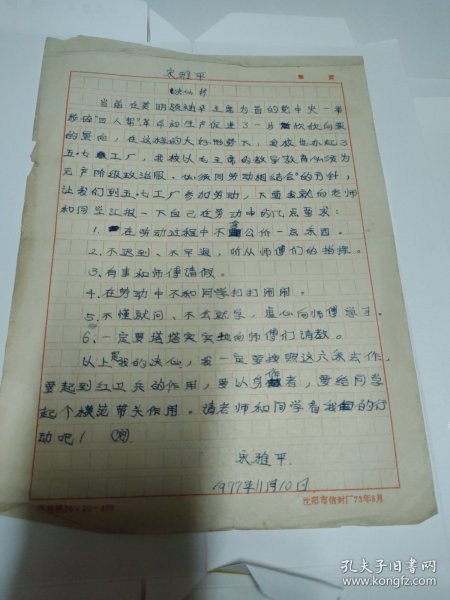 宋雅平
第 页
决心书
当前在英明领袖华主席为首的党中央一举
粉碎"四人帮"革命和生产促进了一片欣欣向荣
的景向,在这样的大好形势下,我校也办起了
五·七工厂,我校以毛主席的教学教育必须为
无产阶级政治服,必须同劳动相结合"的方针,
让我们到五·七工厂参加劳动,下面我向老师
和同学汇报一下自己在劳动中的几点要求:
1.在劳动过程中不拿公价一点东西。
2.不迟到、不早退,听从师傅们的指挥。
3.有事和师傅请假。
4.在劳动中不和同学打打闹闹。
5.不懂就问、不会就学,虚心向师傅学习。
6.一定要塔塔实实地向师傅们请教。
以上是我的决心,我一定要按照这六条去作,
要起到红卫兵的作用,要以身作者,要给同学
起个模范带头作用。请老师和同学看我的行
动吧!
宋雅平.
1977年11月10日
20×20=400
沈阳市信封厂73年8月
孔夫子旧书网
www.kongfz.com